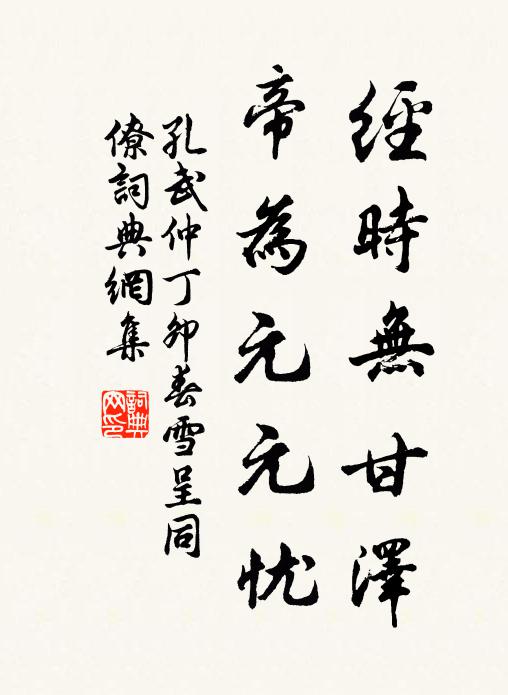 經時無甘澤
帝為元元忧
孔武仲丁卯春雪呈同
僚詞典網集
詞典
网印